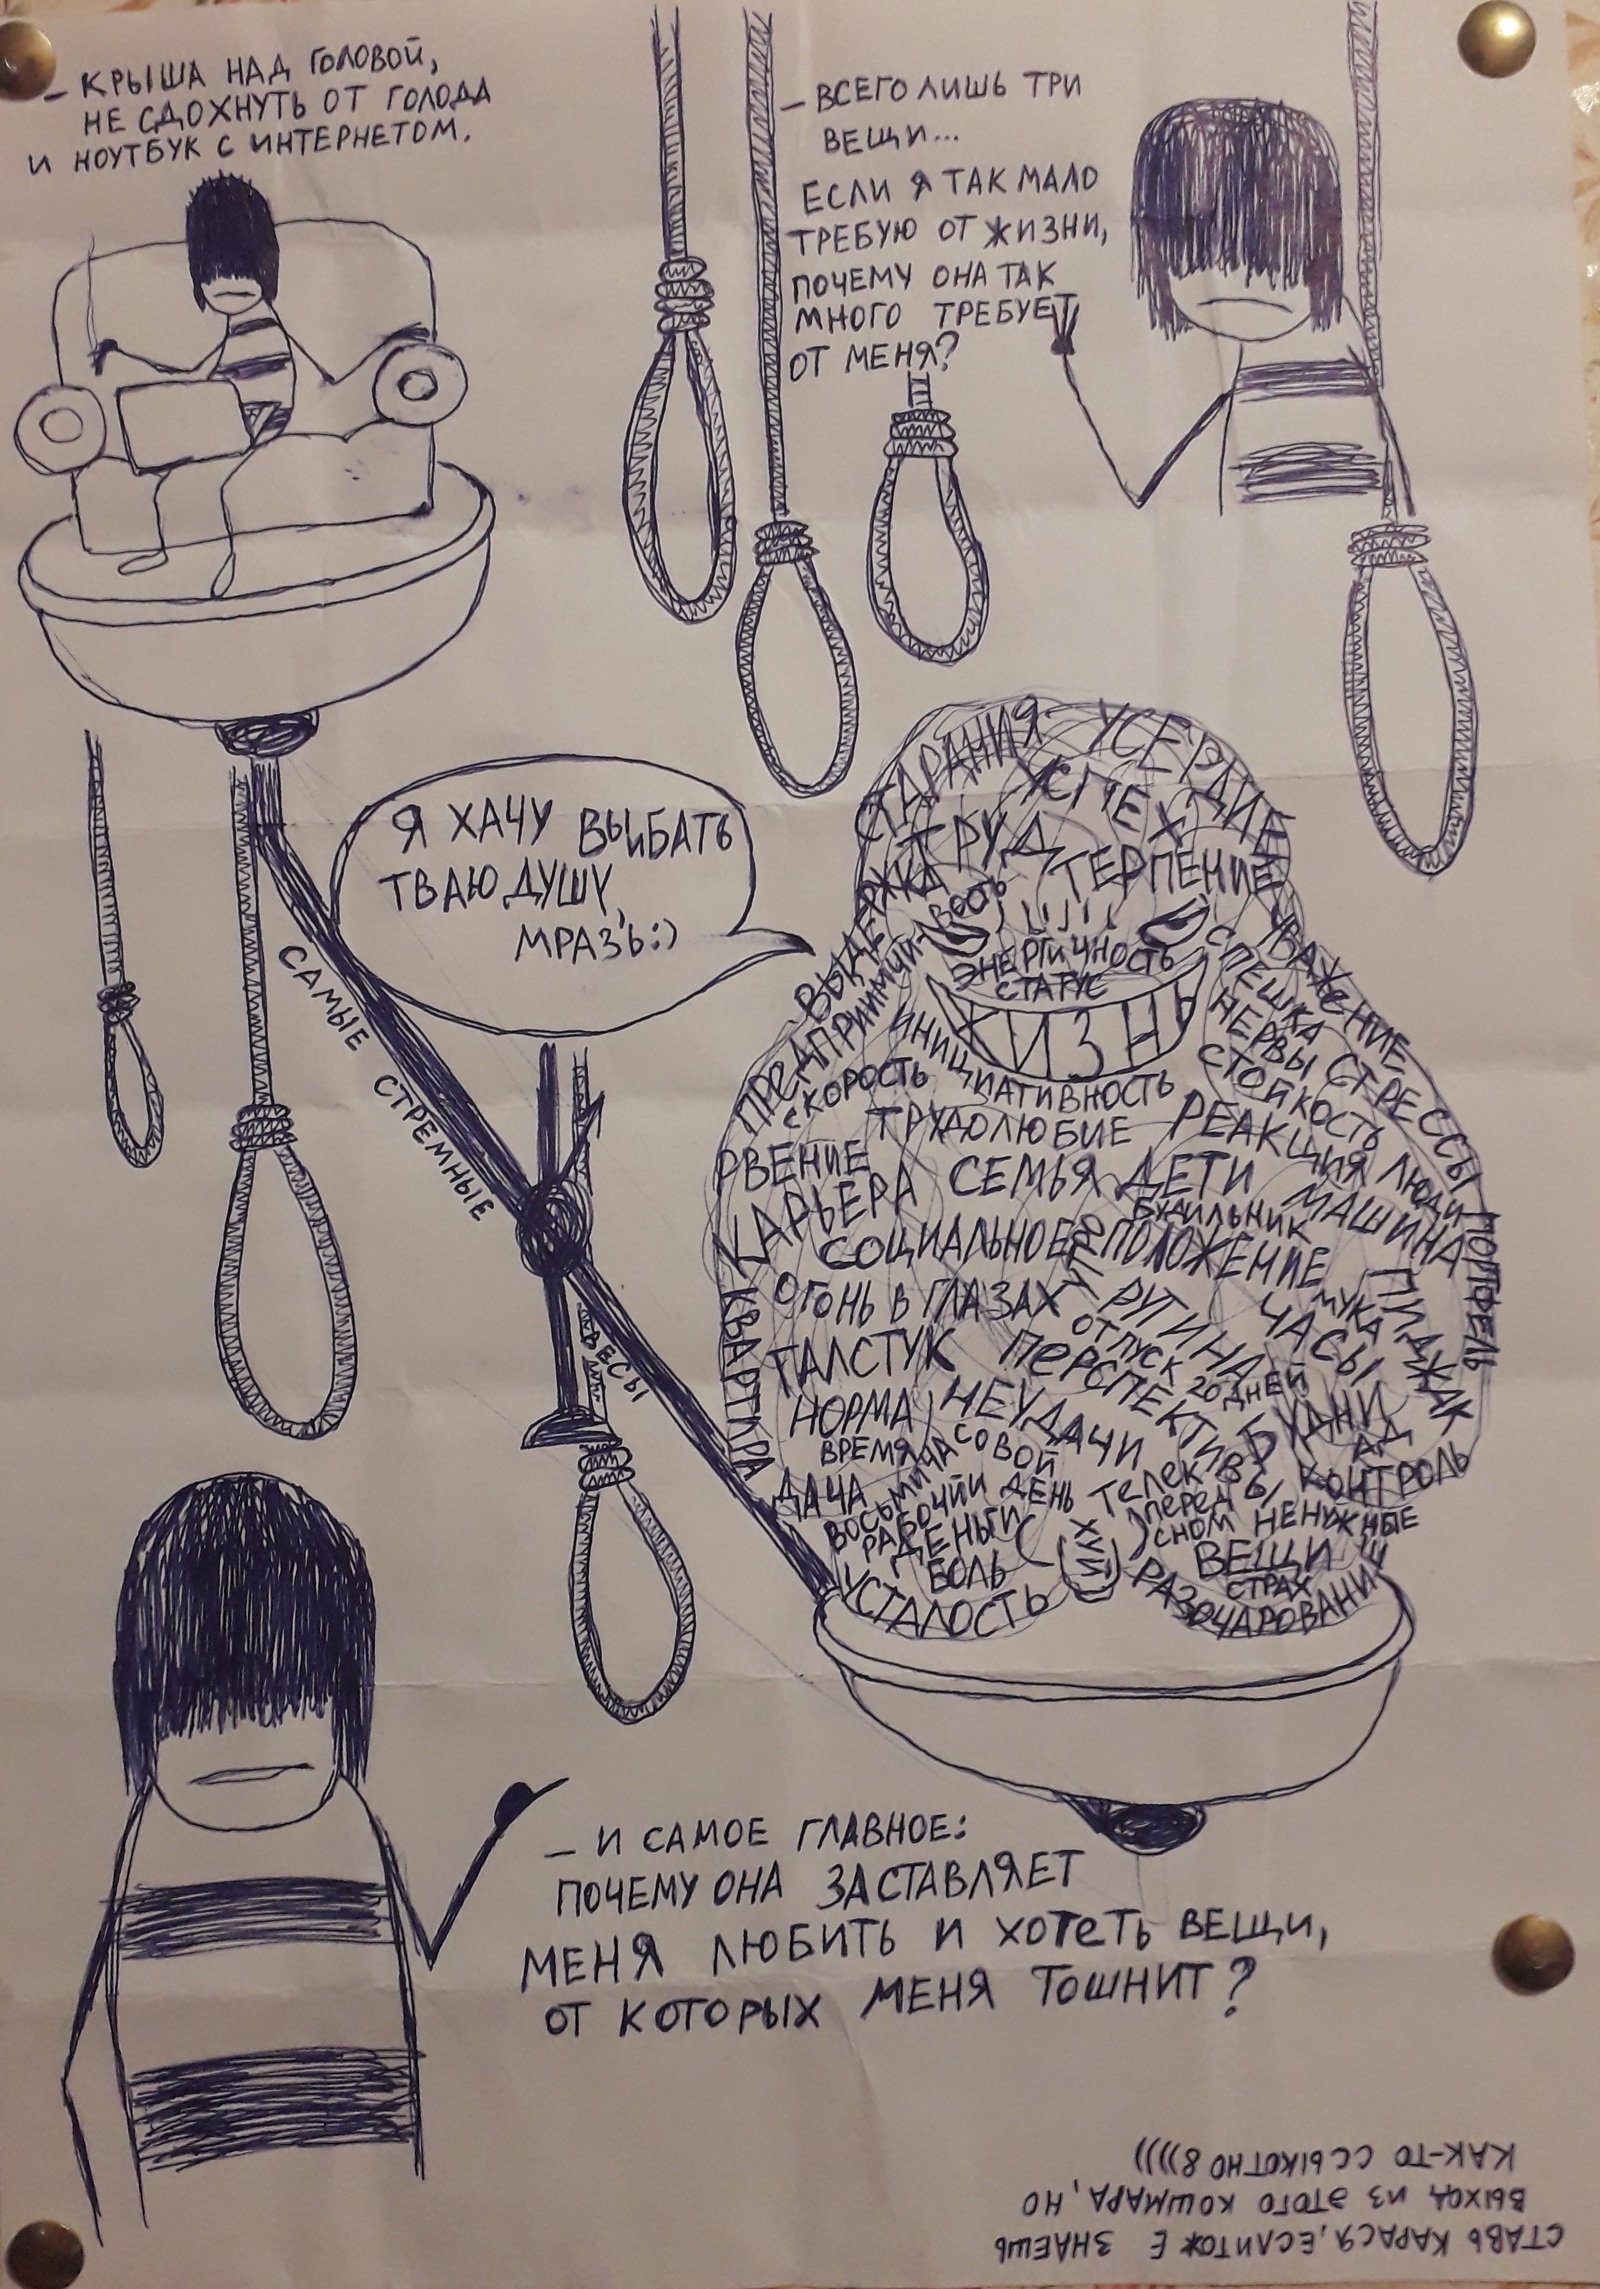 – КРЫША НАД ГОЛОВОЙ,
НЕ СДОХНУТЬ ОТ ГОЛОДА
И НОУТБУК С ИНТЕРНЕТОМ.
– ВСЕГО ЛИШЬ ТРИ
ВЕЩИ...
ЕСЛИ Я ТАК МАЛО
ТРЕБУЮ ОТ ЖИЗНИ,
ПОЧЕМУ ОНА ТАК
МНОГО ТРЕБУЕТ
ОТ МЕНЯ?
Я ХАЧУ ВЫИБАТЬ
ТВАЮ ДУШУ,
МРАЗ'Ь:)
САМЫЕ СТРЕМНЫЕ
ВЕСЫ
СТАРАНИЯ
УСЕРДИЕ
УСПЕХ
ТРУД
ТЕРПЕНИЕ
ВЫДЕРЖКА
ПРЕДПРИИМЧИВОСТЬ
ЭНЕРГИЧНОСТЬ
СТАТУС
ЖИЗНЬ
УВАЖЕНИЕ
СПЕШКА
НЕРВЫ
СТРЕССЫ
СТОЙКОСТЬ
ИНИЦИАТИВНОСТЬ
СКОРОСТЬ
ТРУДОЛЮБИЕ
РЕАКЦИЯ
ЛЮДИ
РВЕНИЕ
КАРЬЕРА
СЕМЬЯ
ДЕТИ
БУДИЛЬНИК
МАШИНА
ПОРТФЕЛЬ
СОЦИАЛЬНОЕ ПОЛОЖЕНИЕ
УТРО
ОГОНЬ В ГЛАЗАХ
РУТИНА
МУКА
ПИДЖАК
ЧАСЫ
КВАРТИРА
ГАЛСТУК
ОТПУСК
20 ДНЕЙ
ПЕРСПЕКТИВЫ
НОРМА
НЕУДАЧИ
БУДНИ
АД
ВРЕМЯ
КОНТРОЛЬ
ДАЧА
ВОСЬМИЧАСОВОЙ
РАБОЧИЙ ДЕНЬ
ТЕЛЕК
ПЕРЕД
СНОМ
НЕНУЖНЫЕ
ВЕЩИ
ДЕНЬГИ
БОЛЬ
ХУЙ
СТРАХ
УСТАЛОСТЬ
РАЗОЧАРОВАНИЕ
– И САМОЕ ГЛАВНОЕ:
ПОЧЕМУ ОНА ЗАСТАВЛЯЕТ
МЕНЯ ЛЮБИТЬ И ХОТЕТЬ ВЕЩИ,
ОТ КОТОРЫХ МЕНЯ ТОШНИТ?
СТАВЬ КАРАСЯ, ЕСЛИ ТОЖЕ ЗНАЕШЬ
ВЫХОД ИЗ ЭТОГО КОШМАРА, НО
КАК-ТО ССЫКОТНО 8))))